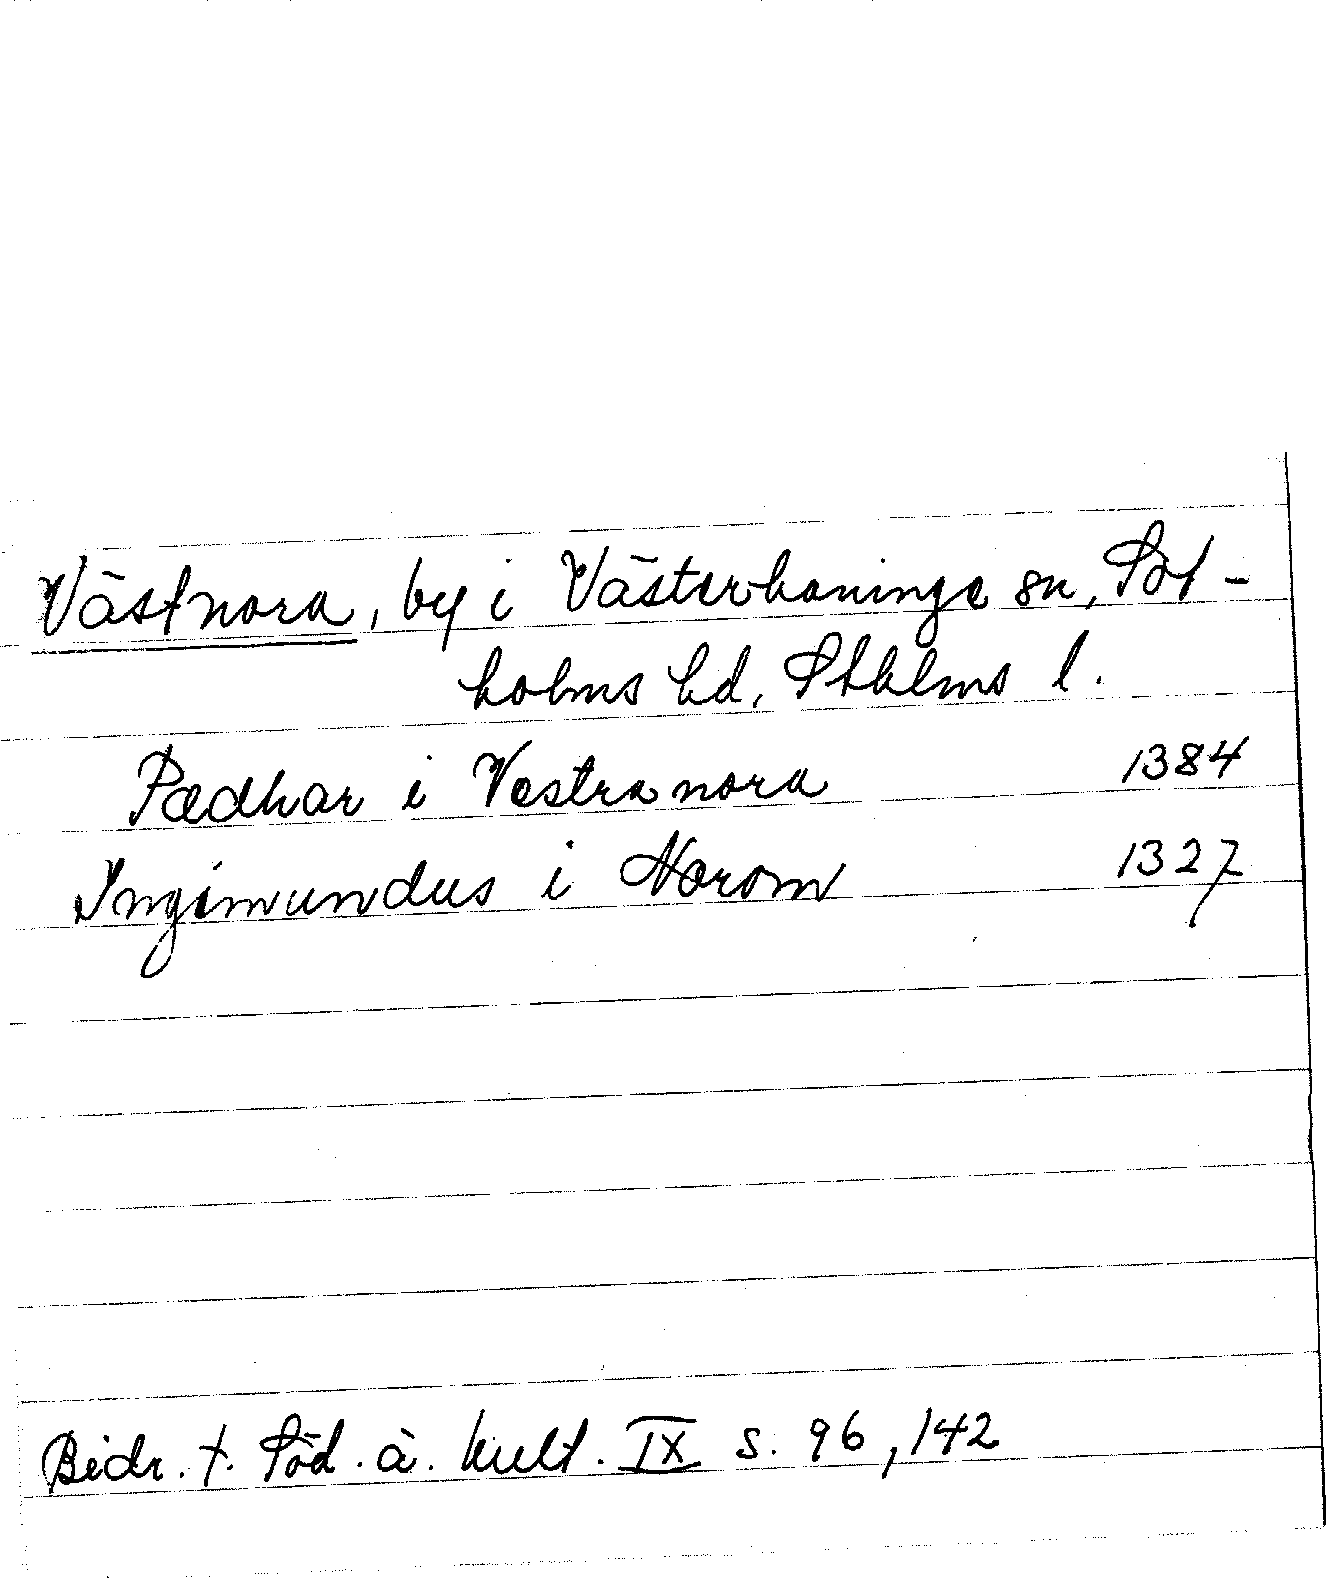 Västnora, by i Västerhaninge sn, Sot-
holms hd, Sthlms l.
Pædhar i Vestra nora 1384
Ingimundus i Norom 1327
Bidr. t. Söd. ä. kult. IX s. 96, 142